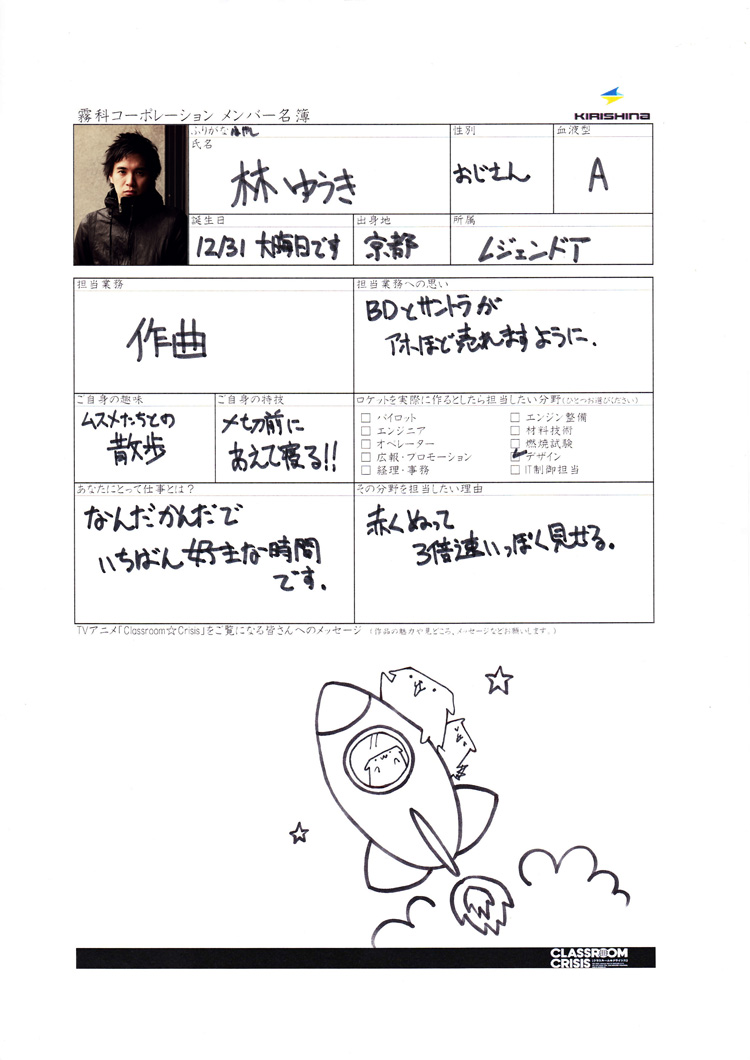 KIRISHINA
霧科コーポレーション メンバー名簿
ふりがな はやし
氏名
林 ゆうき
性別
おじさん
血液型
A
誕生日
12/31 大晦日です
出身地
京都
所属
レジェンドT
担当業務
作曲
担当業務への思い
BDとサントラが
アホほど売れますように.
ご自身の趣味
ムスメたちとの
散歩
ご自身の特技
〆切前に
あえて寝る!!
ロケットを実際に作るとしたら担当したい分野(ひとつお選びください)
□ パイロット
□ エンジニア
□ オペレーター
□ 広報・プロモーション
□ 経理・事務
□ エンジン整備
□ 材料技術
□ 燃焼試験
☑ デザイン
□ IT制御担当
あなたにとって仕事とは?
なんだかんだで
いちばん好きな時間
です.
その分野を担当したい理由
赤くぬって
3倍速いっぽく見せる.
TVアニメ「Classroom☆Crisis」をご覧になる皆さんへのメッセージ (作品の魅力や見どころ、メッセージなどお願いします。)
CLASSROOM
CRISIS